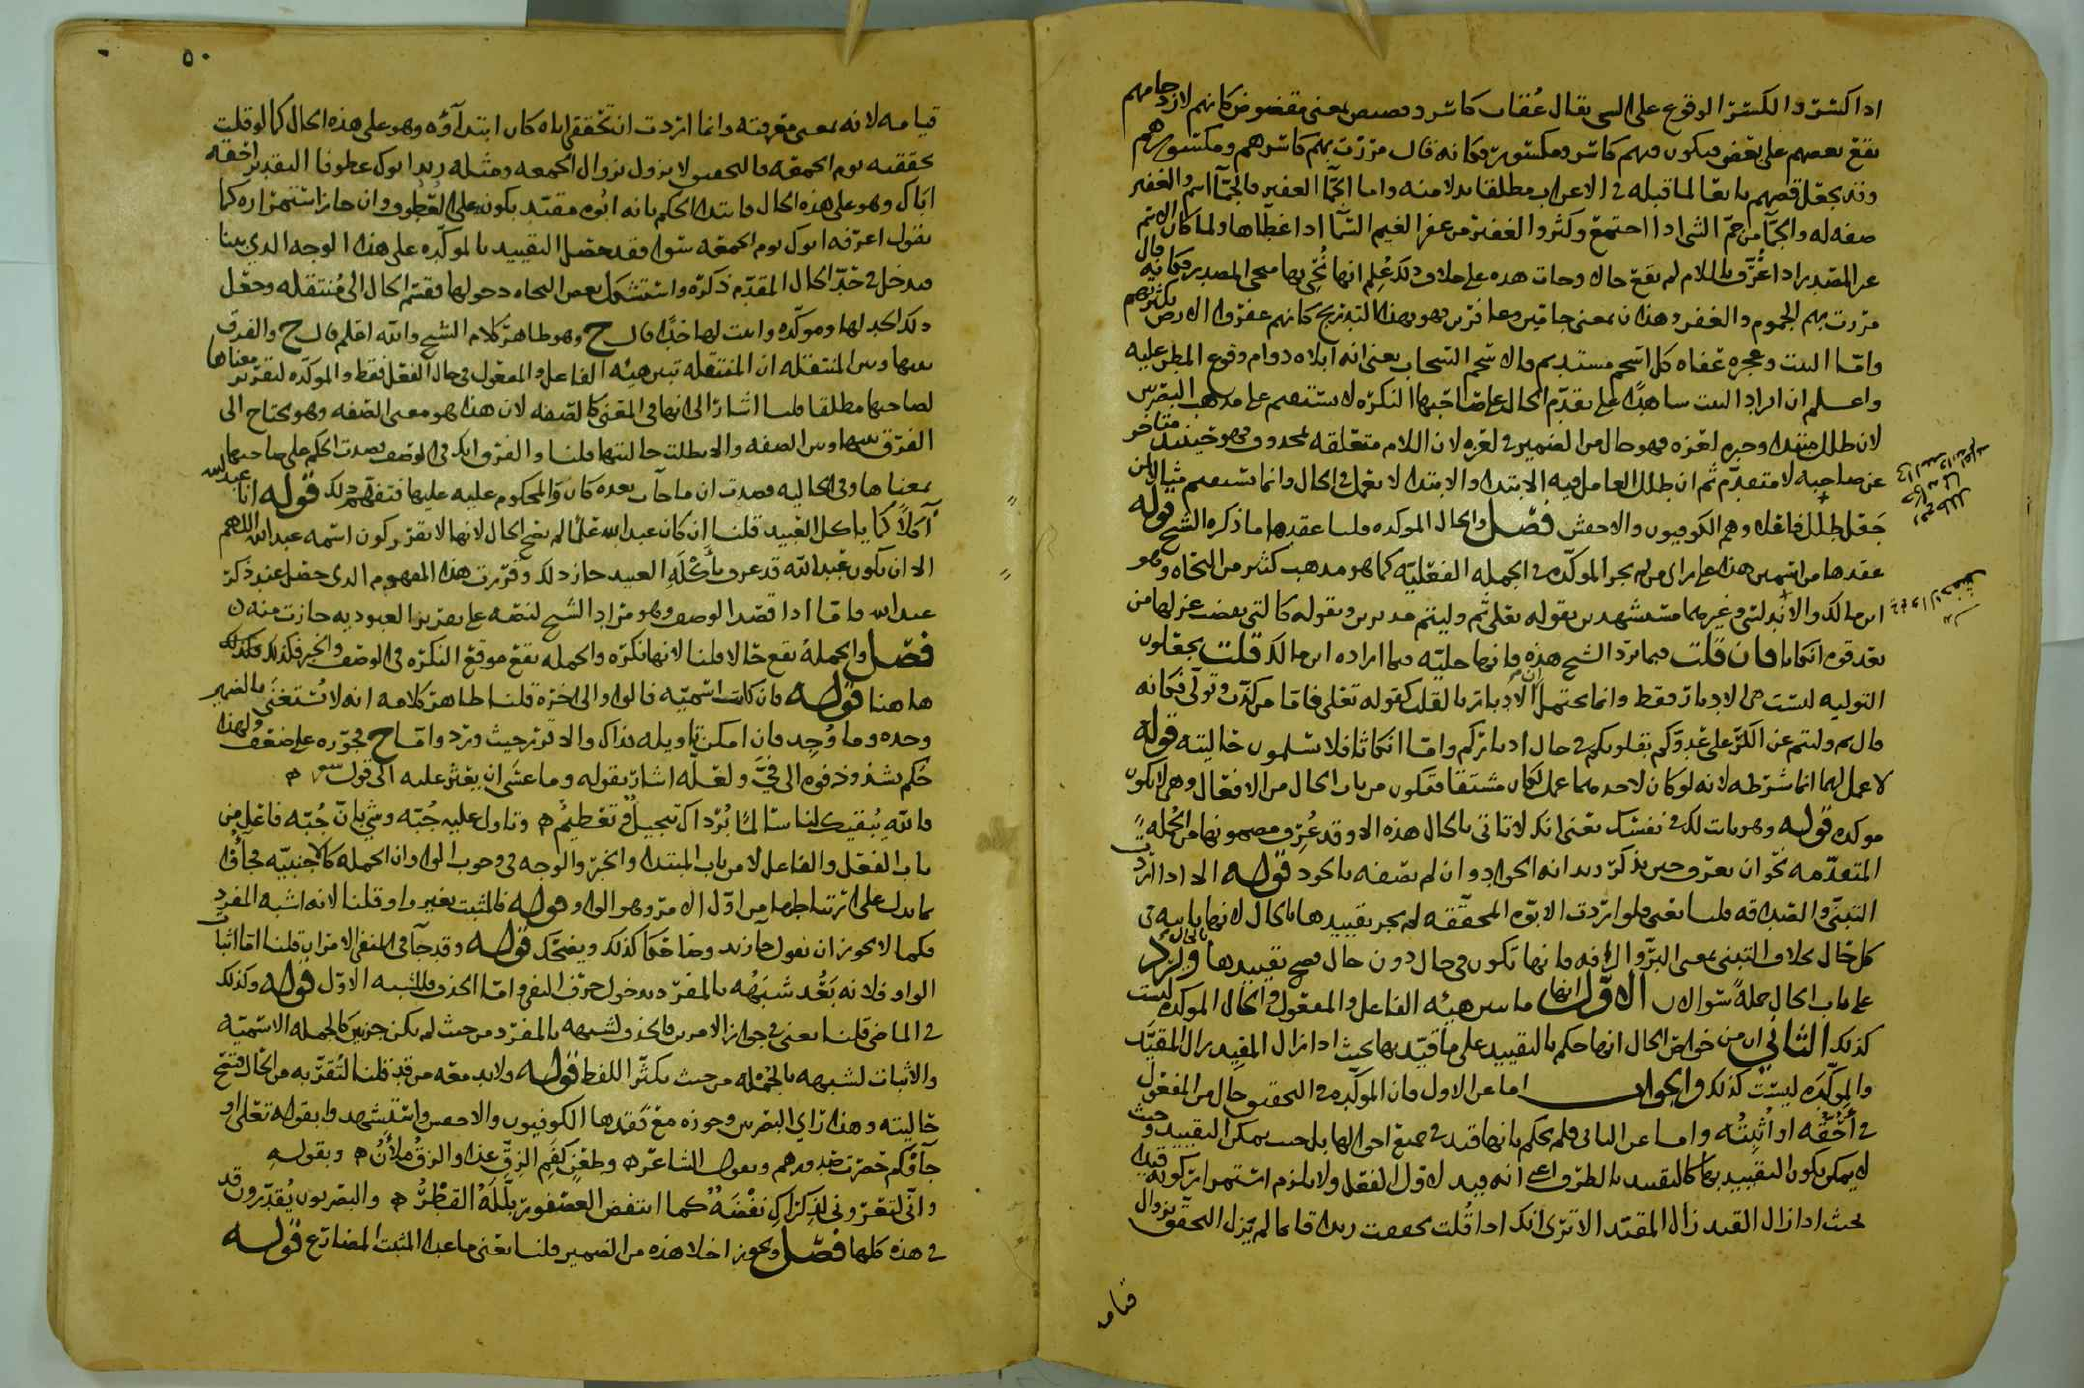 اذا كسّر والكسر الوقوع على الشي يقال عُقاب كاسر وقصيص بمعنى مقضوض كانهم لازدحامهم
يقع بعضهم على بعض فيكون فيهم كاسر ومكسور فكانه قال مررت بهم كاسرهم ومكسورهم
وقد يجعل قضهم تابعا لما قبله في الاعراب مطلقا بدلا منه واما الجمّا الغفير فالجمّا اسم والغفير
صفه له والجمّا من جمّ الشي اذا اجتمع وكثر والغفير من غفر الغيم السّما اذا غطّاها ولما كان الاسم
غير المصدر اذا عُرّف باللام لم يقع حالا وجات هذه على خلاف ذلك عُلم انها نُحّي بها منحى المصدر فكانه قال
مررت بهم الجموم والغفر وهذان بمعنى جامّين وغافرين فهو بهذا التدريج كانهم غفروا الارض بكثرتهم
وامّا البيت وعجزه عفاه كل اسحم مستديم فالاسحم السحاب يعنى انه ابلاه دوام وقوع المطر عليه
واعلم ان ايراد البيت شاهدًا على تقدّم الحال على صاحبها النكرة لا يستقيم على مذهب البصريين
لان طلل مبتدا وخبره لعزه فهو حال من الضمير في لعزه لان اللام متعلقه بمحذوف فهو حينئذ متاخر
عن صاحبه لا متقدّم ثم ان طلل العامل فيه الابتدا والابتدا لا يعمل في الحال وانما يستقيم مثالا لمن
جَعَل طلل فاعلا وهم الكوفيون والاخفش فصل والحال الموكده قلنا عقدها ما ذكره الشيخ قوله
عقدها من اسمين هذا على راي من لم يجز الموكّده في الجمله الفعليّه كما هو مذهب كثير من النحاه وهو
ابن مالك والاندلسي وغيرهما مستشهدين بقوله تعلى ثم وليتم مدبرين وبقوله كالتي نقضت غزلها من
بعد قوه انكاثا فان قلت فبما ترد الشيخ هذه فانها حاليّه فيما اراده ابن مالك قلت يجعلون
التوليه ليست هي الادبار فقط وانما يحتمل ان الادبار بالقلب كقوله تعلى فامّا من كذّب وتولّى فكانه
قال ثم وليتم عن الكرّ على عدوّكم بقلوبكم في حال ادباركم وامّا انكاثا فلا يسلمون حاليته قوله
لا عمل لهما انما شرطه لانه لو كان لاحدهما عمل لكان مشتقا فتكون من باب الحال من الافعال وهي لا تكون
موكده قوله وهو بات لك في نفسك يعنى انك لا تاتي بالحال هذه الا وقد عُرف مضمونها من الجُمله
المتقدّمه نحو ان يعرف حين يذكر زيد انه الجواد وان لم تصفه بالجود قوله الا اذا اردت
التبنّي والصّداقه قلنا يعني فلو اردت الابوّه المحقّقه لم يجز تقييدها بالحال لانها ثابته في
كل حال بخلاف التبني بمعنى البرّ والرافه فانها تكون في حال دون حال فصح تقييدها بالحال ويرد
على باب الحال جملةً سوالان الاول انها ما يبين هيئه الفاعل والمفعول والحال الموكده ليست
كذلك الثاني ان من خواص الحال انها حكم بالتقييد على ما قيّد بها بحيث اذا زال المقيِّد زال المقيَّد
والموكّده ليست كذلك والجواب اما عن الاول فان الموكّده في التحقيق حال من المفعول
في أُحُقّه او أُثبتُه واما عن الثاني فلم يحكم بانها قيد في جميع احوالها بل حيث يمكن التقييد وحيث
لا يمكن يكون التقييد بها كالتقييد بالظرف اعني انه قيد لاوّل الفعل ولا يلزم استمرار كونه قيدا
بحيث اذا زال القيد زال المقيّد الا ترى انك اذا قُلت تحققت زيدا قائما لم يَزل التحقق بزوال
قيامه
٥٠
قيامه لانه بمعنى معرفته وانما اردت ان تحققي اياه كان ابتداؤه وهو على هذه الحال كما لو قلت
تحققته يوم الجمعه فالتحقيق لا يزول بزوال الجمعه ومثله زيد ابوك عطوفا التقدير احقه
اباك وهو على هذه الحال فابتدا الحكم بانه ابوه مقيّد بكونه على العُطوف وان جاز استمراره كما
يقول اعرفه ابوك يوم الجمعه سوا فقد حصل التقييد بالموكّده على هذا الوجه الذي بينا
فدخل في حدّ الحال المقدّم ذكره واستشكل بعض النحاه دخولها فقسّم الحال الى مُنتقله وجعل
ذلك الحد لها وموكّده واثبت لها حدًّا قال ح وهو ظاهر كلام الشيخ والله اعلم قال ح والفرق
بينها وبين المنتقله ان المنتقله تبين هيئه الفاعل والمفعول في حال الفعل فقط والموكّده لتقرير معناها
لصاحبها مطلقا قلنا اشار الى انها في المعنى كالصفه لان هذا هو معنى الصّفه وهو يحتاج الى
الفرق بينها وبين الصفه والا بطلت حاليتها قلنا والفرق انك في الوصف قصدت الحكم على صاحبها
بمعناها وفي الحاليه قصدت ان ما جات بعده كان والمحكوم عليه عليها فتفهّم ذلك قوله انا عبدالله
آكلاً كما ياكل العبيد قلنا ان كان عبدالله علما لم يصح الحال لانها لا تقرر كون اسمه عبدالله اللهم
الا ان يكون عبدالله قد عرف بأكله اكل العبيد جاز ذلك وقررت هذا المفهوم الذي حصل عند ذكر
عبدالله فامّا اذا قصد الوصف وهو مراد الشيخ لنصّه على تقرير العبوديه جازت منه
فصل والجمله تقع حالا قلنا لانها نكره والجمله تقع موقع النكره في الوصف والخبر فكذلك
هاهنا قوله فان كانت اسميّه فالواو الى اخره قلنا ظاهر كلامه انه لا يُستغنى بالضمير
وحده وما وُجِد فان امكن تاويله فذاك والا قرّر حيث ورد وامّا ح فجوّزه على ضعف ولهذا
حُكم بشذوذ فوه الى فيَّ ولعلّه اشار بقوله وما عسى ان يعثر عليه الى قول
فالله يُبقيك لنا سالمًا بُرداك تبجيلٌ وتعظيمٌ وتاول عليه جُبّه وشيٍ بان جُبّه فاعل من
باب الفعل والفاعل لا من باب المبتدا والخبر والوجه في وجوب الواو ان الجمله كالاجنبيّه فجاؤا
بما يدل على ارتباطها من اوّل الامر وهو الواو قوله فالمثبت بغير واو قلنا لانه اشبه المفرد
فكما لا يجوز ان تقول جا زيد وضاحكا كذلك ويضحك قوله وقد جا في المنفي الامران قلنا امّا اثبات
الواو فلانه بَعُد شَبَهُه بالمفرد بدخول حرف النفي وامّا الحذف فللشبه الاوّل قوله وكذلك
في الماضي قلنا يعني في جواز الامرين فالحذف لشبهه بالمفرد من حيث لم يكن جزئين كالجمله الاسميّه
والاثبات لشبهه بالجُمله من حيث يكثر اللفظ قوله ولا بد معه من قد قلنا لتُقرّبه من الحال فتصح
حاليته وهذا راي البصريين وجوزه مع فقدها الكوفيون والاخفش واستشهدوا بقوله تعلى او
جآؤكم حصرت صدورهم وبقول الشاعر وطعنٍ كفَمِ الزقّ غذا والزقُّ ملأنُ وبقوله
وانّي لتعروني لذكراك نفضهٌ كما انتفض العصفور بلّلَهُ القَطْرُ والبصريون يُقدّرون قد
في هذه كلها فصل ويجوز اخلا هذه من الضمير قلنا يعني ما عدا المثبت المضارع قوله